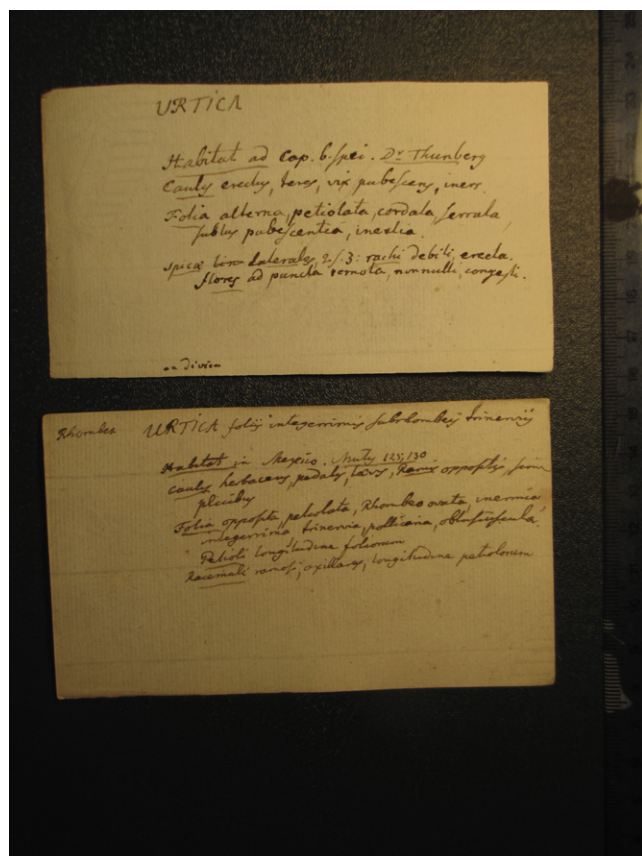 URTICA
Habitat ad Cap. b. spei. Dr Thunberg
Caulis erectus, teres, vix pubescens, iners.
Folia alterna, petiolata, cordata, serrata,
subtus pubescentia, inertia.
Spicæ laterales, 2 s. 3: rachi debili, erecta.
flores ad puncta remota, nonnulli, congesti.
an divica
Rhombea URTICA foliis integerrimis subrhombeis trinerviis
Habitat in Mexico. Mutis 125, 130
Caulis herbaceus, pedalis, lævis, Ramis oppositis, sim
plicibus
Folia opposita, petiolata, Rhombeo ovata, inermia
integerrima trinervia, pollicaria, obtusiuscula.
Petioli longitudine foliorum
Racemuli ramosi, axillares, longitudine petiolorum